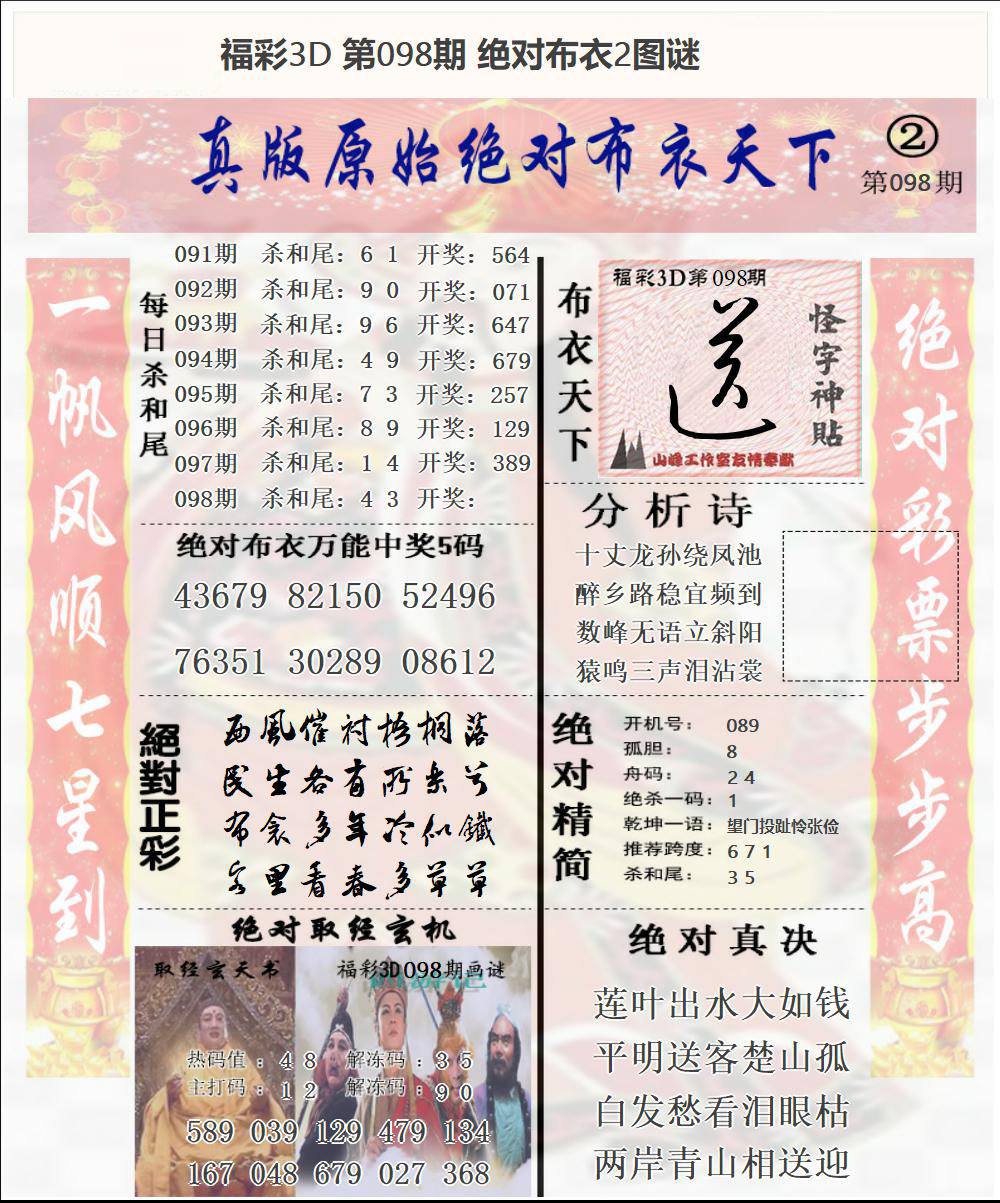 福彩3D 第098期 绝对布衣2图谜
真版原始绝对布衣天下
②
第098期
一帆风顺七星到
每日杀和尾
091期 杀和尾：6 1 开奖：564
092期 杀和尾：9 0 开奖：071
093期 杀和尾：9 6 开奖：647
094期 杀和尾：4 9 开奖：679
095期 杀和尾：7 3 开奖：257
096期 杀和尾：8 9 开奖：129
097期 杀和尾：1 4 开奖：389
098期 杀和尾：4 3 开奖：
绝对布衣万能中奖5码
43679 82150 52496
76351 30289 08612
絕對正彩
西風催衬梧桐落
民生各有所乐兮
布衾多年冷似鐵
客里青春多草草
绝对取经玄机
取经玄天书
福彩3D098期画谜
热码值：4 8 解冻码：3 5
主打码：1 2 解冻码：9 0
589 039 129 479 134
167 048 679 027 368
布衣天下
福彩3D第098期
怪字神贴
山峰工作室友情奉献
分析诗
十丈龙孙绕凤池
醉乡路稳宜频到
数峰无语立斜阳
猿鸣三声泪沾裳
绝对精简
开机号：089
孤胆：8
舟码：2 4
绝杀一码：1
乾坤一语：望门投趾怜张俭
推荐跨度：6 7 1
杀和尾：3 5
绝对真决
莲叶出水大如钱
平明送客楚山孤
白发愁看泪眼枯
两岸青山相送迎
绝对彩票步步高